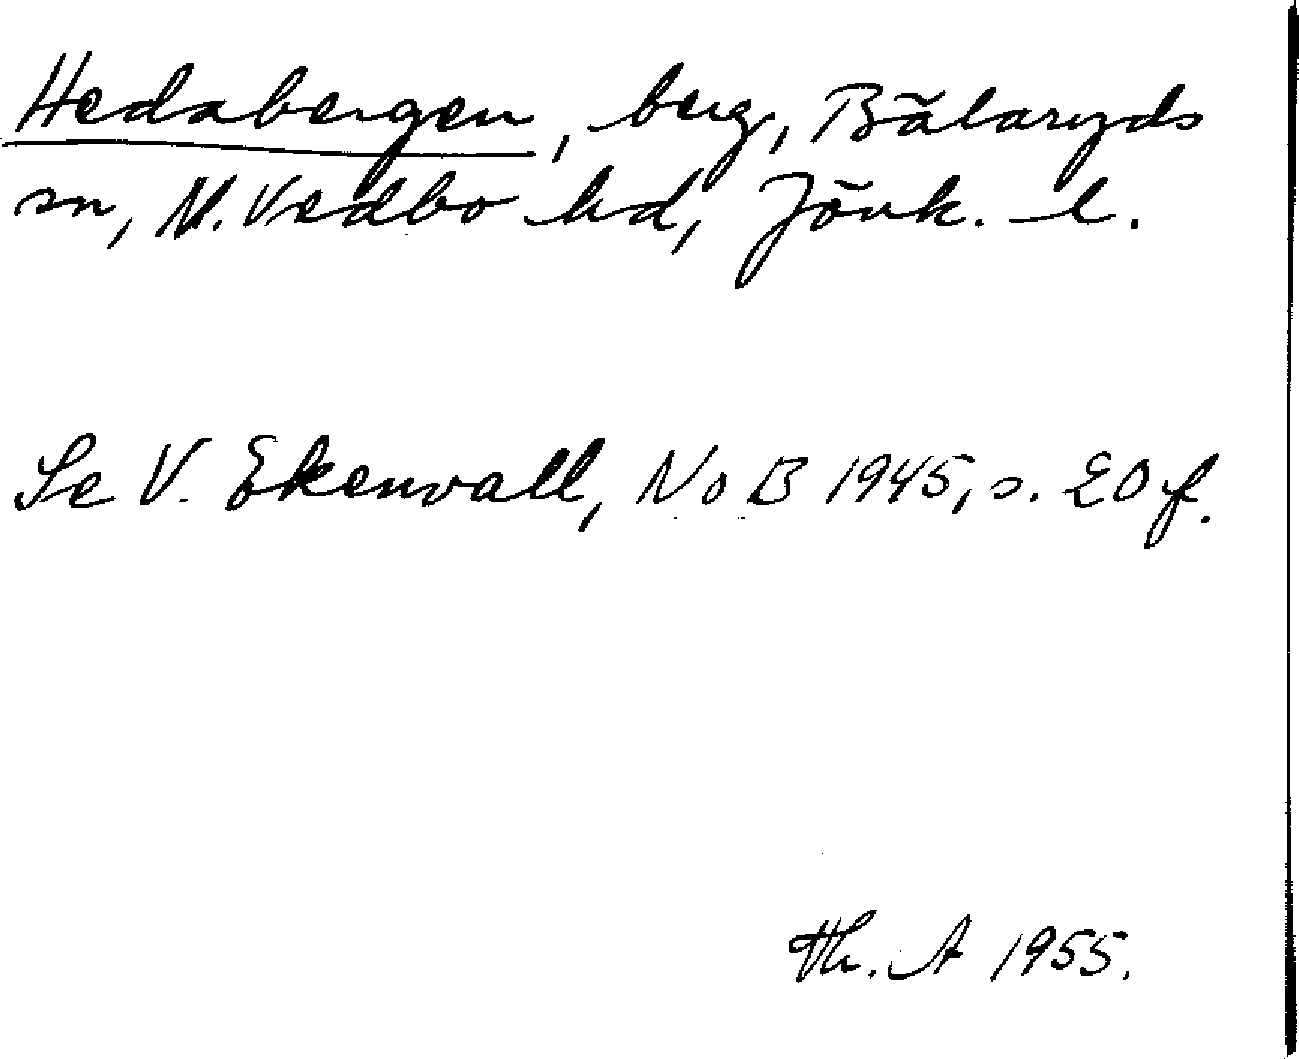 Hedabergen, berg, Bälaryds
sn, N. Vedbo hd, Jönk. l.
Se V. Ekenvall, NoB 1945, s. 20 f.
Th. A 1955.